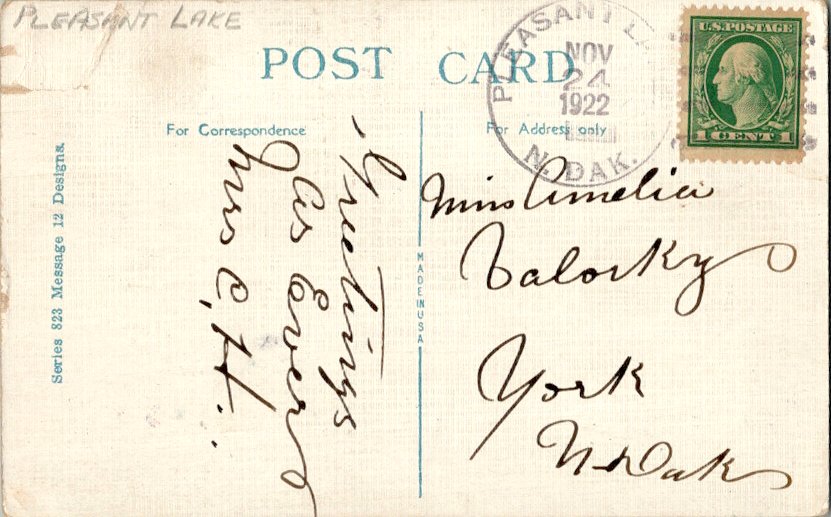 PLEASANT LAKE
POST CARD
PLEASANT LA
NOV
24
1922
N. DAK.
U.S. POSTAGE
1 CENT 1
For Correspondence
For Address only
Series 823 Message 12 Designs.
MADE IN USA
Greetings
As Ever
Mrs C, H.
Miss Amelia
York
N-Dak